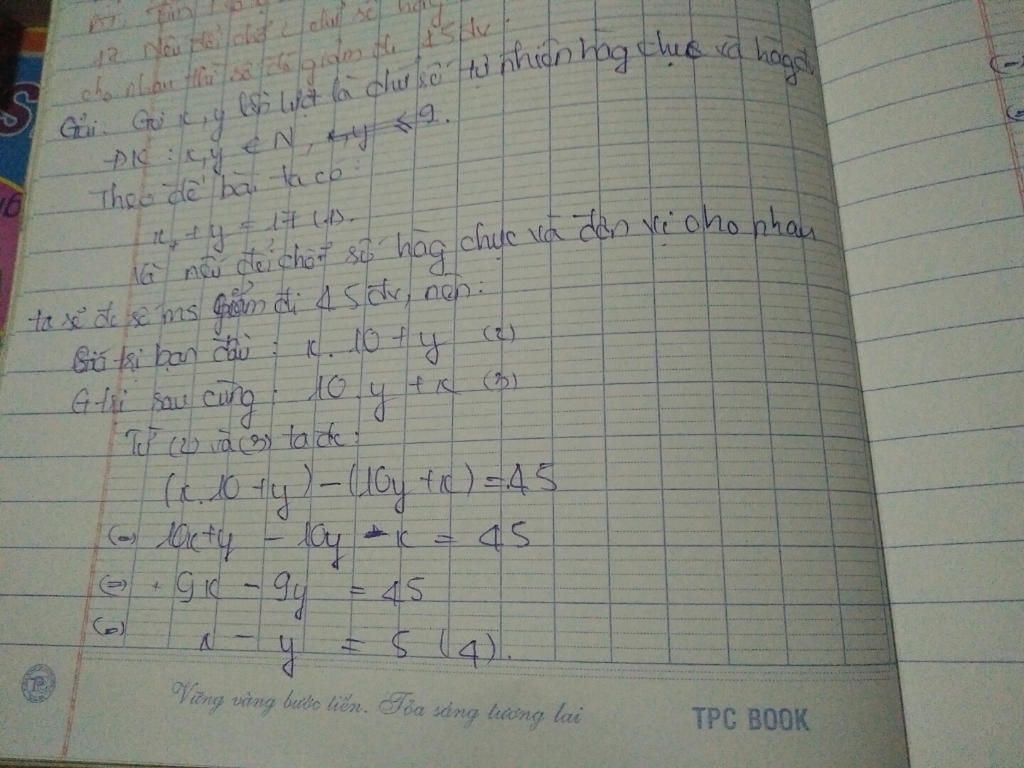 17. Nếu đổi chỗ 2 chữ số hàng
cho nhau thì số đó giảm đi 45 đv.
Giải: Gọi x, y lần lượt là chữ số tự nhiên hàg chục và hàg đv
ĐK: x,y ∈ N, x,y ≤ 9.
Theo đề bài ta có:
x + y = 17 (1).
Và nếu đổi chỗ số hàg chục và đơn vị cho nhau
ta sẽ đc số ms giảm đi 45 đv, nên:
Giá trị ban đầu: x.10 + y (2)
G.trị sau cùng: 10.y + x (3)
Từ (2) và (3) ta đc:
(x.10 + y) - (10y + x) = 45
(=) 10x+y - 10y - x = 45
(=) 9x - 9y = 45
(=) x - y = 5 (4).
Vững vàng bước tiến. Tỏa sáng tương lai
TPC BOOK